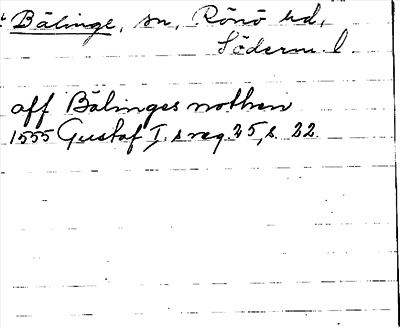 Bälinge, sn, Rönö hd,
Söderm. l.
aff Bälinges nothen
1555 Gustaf I:s reg 25, s. 22